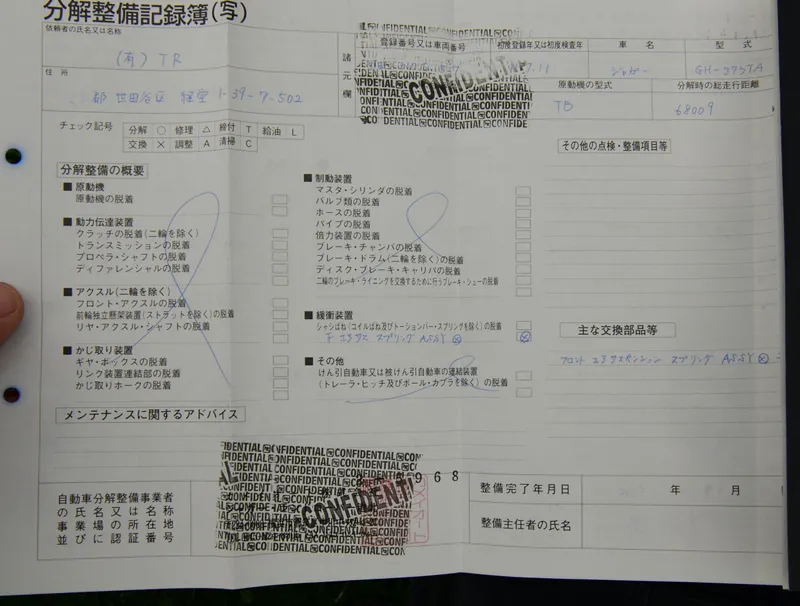 分解整備記録簿(写)
依頼者の氏名又は名称
(有) TR
住所
都 世田谷区 経堂 1-39-7-502
諸元欄
登録番号又は車両番号
初度登録年又は初度検査年
車名
ジャガー
型式
GH-J73TA
原動機の型式
TB
分解時の総走行距離
68009
CONFIDENTIAL
チェック記号
分解 ○ 修理 △ 締付 T 給油 L
交換 × 調整 A 清掃 C
分解整備の概要
■ 原動機
原動機の脱着
■ 動力伝達装置
クラッチの脱着(二輪を除く)
トランスミッションの脱着
プロペラ・シャフトの脱着
ディファレンシャルの脱着
■ アクスル(二輪を除く)
フロント・アクスルの脱着
前輪独立懸架装置(ストラットを除く)の脱着
リヤ・アクスル・シャフトの脱着
■ かじ取り装置
ギヤ・ボックスの脱着
リンク装置連結部の脱着
かじ取りホークの脱着
■ 制動装置
マスタ・シリンダの脱着
バルブ類の脱着
ホースの脱着
パイプの脱着
倍力装置の脱着
ブレーキ・チャンバの脱着
ブレーキ・ドラム(二輪を除く)の脱着
ディスク・ブレーキ・キャリパの脱着
二輪のブレーキ・ライニングを交換するために行うブレーキ・シューの脱着
■ 緩衝装置
シャシばね(コイルばね及びトーションバー・スプリングを除く)の脱着
スプリング ASSY ⊗
■ その他
けん引自動車又は被けん引自動車の連結装置
(トレーラ・ヒッチ及びボール・カプラを除く)の脱着
その他の点検・整備項目等
主な交換部品等
フロント スプリング ASSY ⊗
メンテナンスに関するアドバイス
自動車分解整備事業者
の氏名又は名称
事業場の所在地
並びに認証番号
CONFIDENTIAL
968
整備完了年月日
年 月
整備主任者の氏名